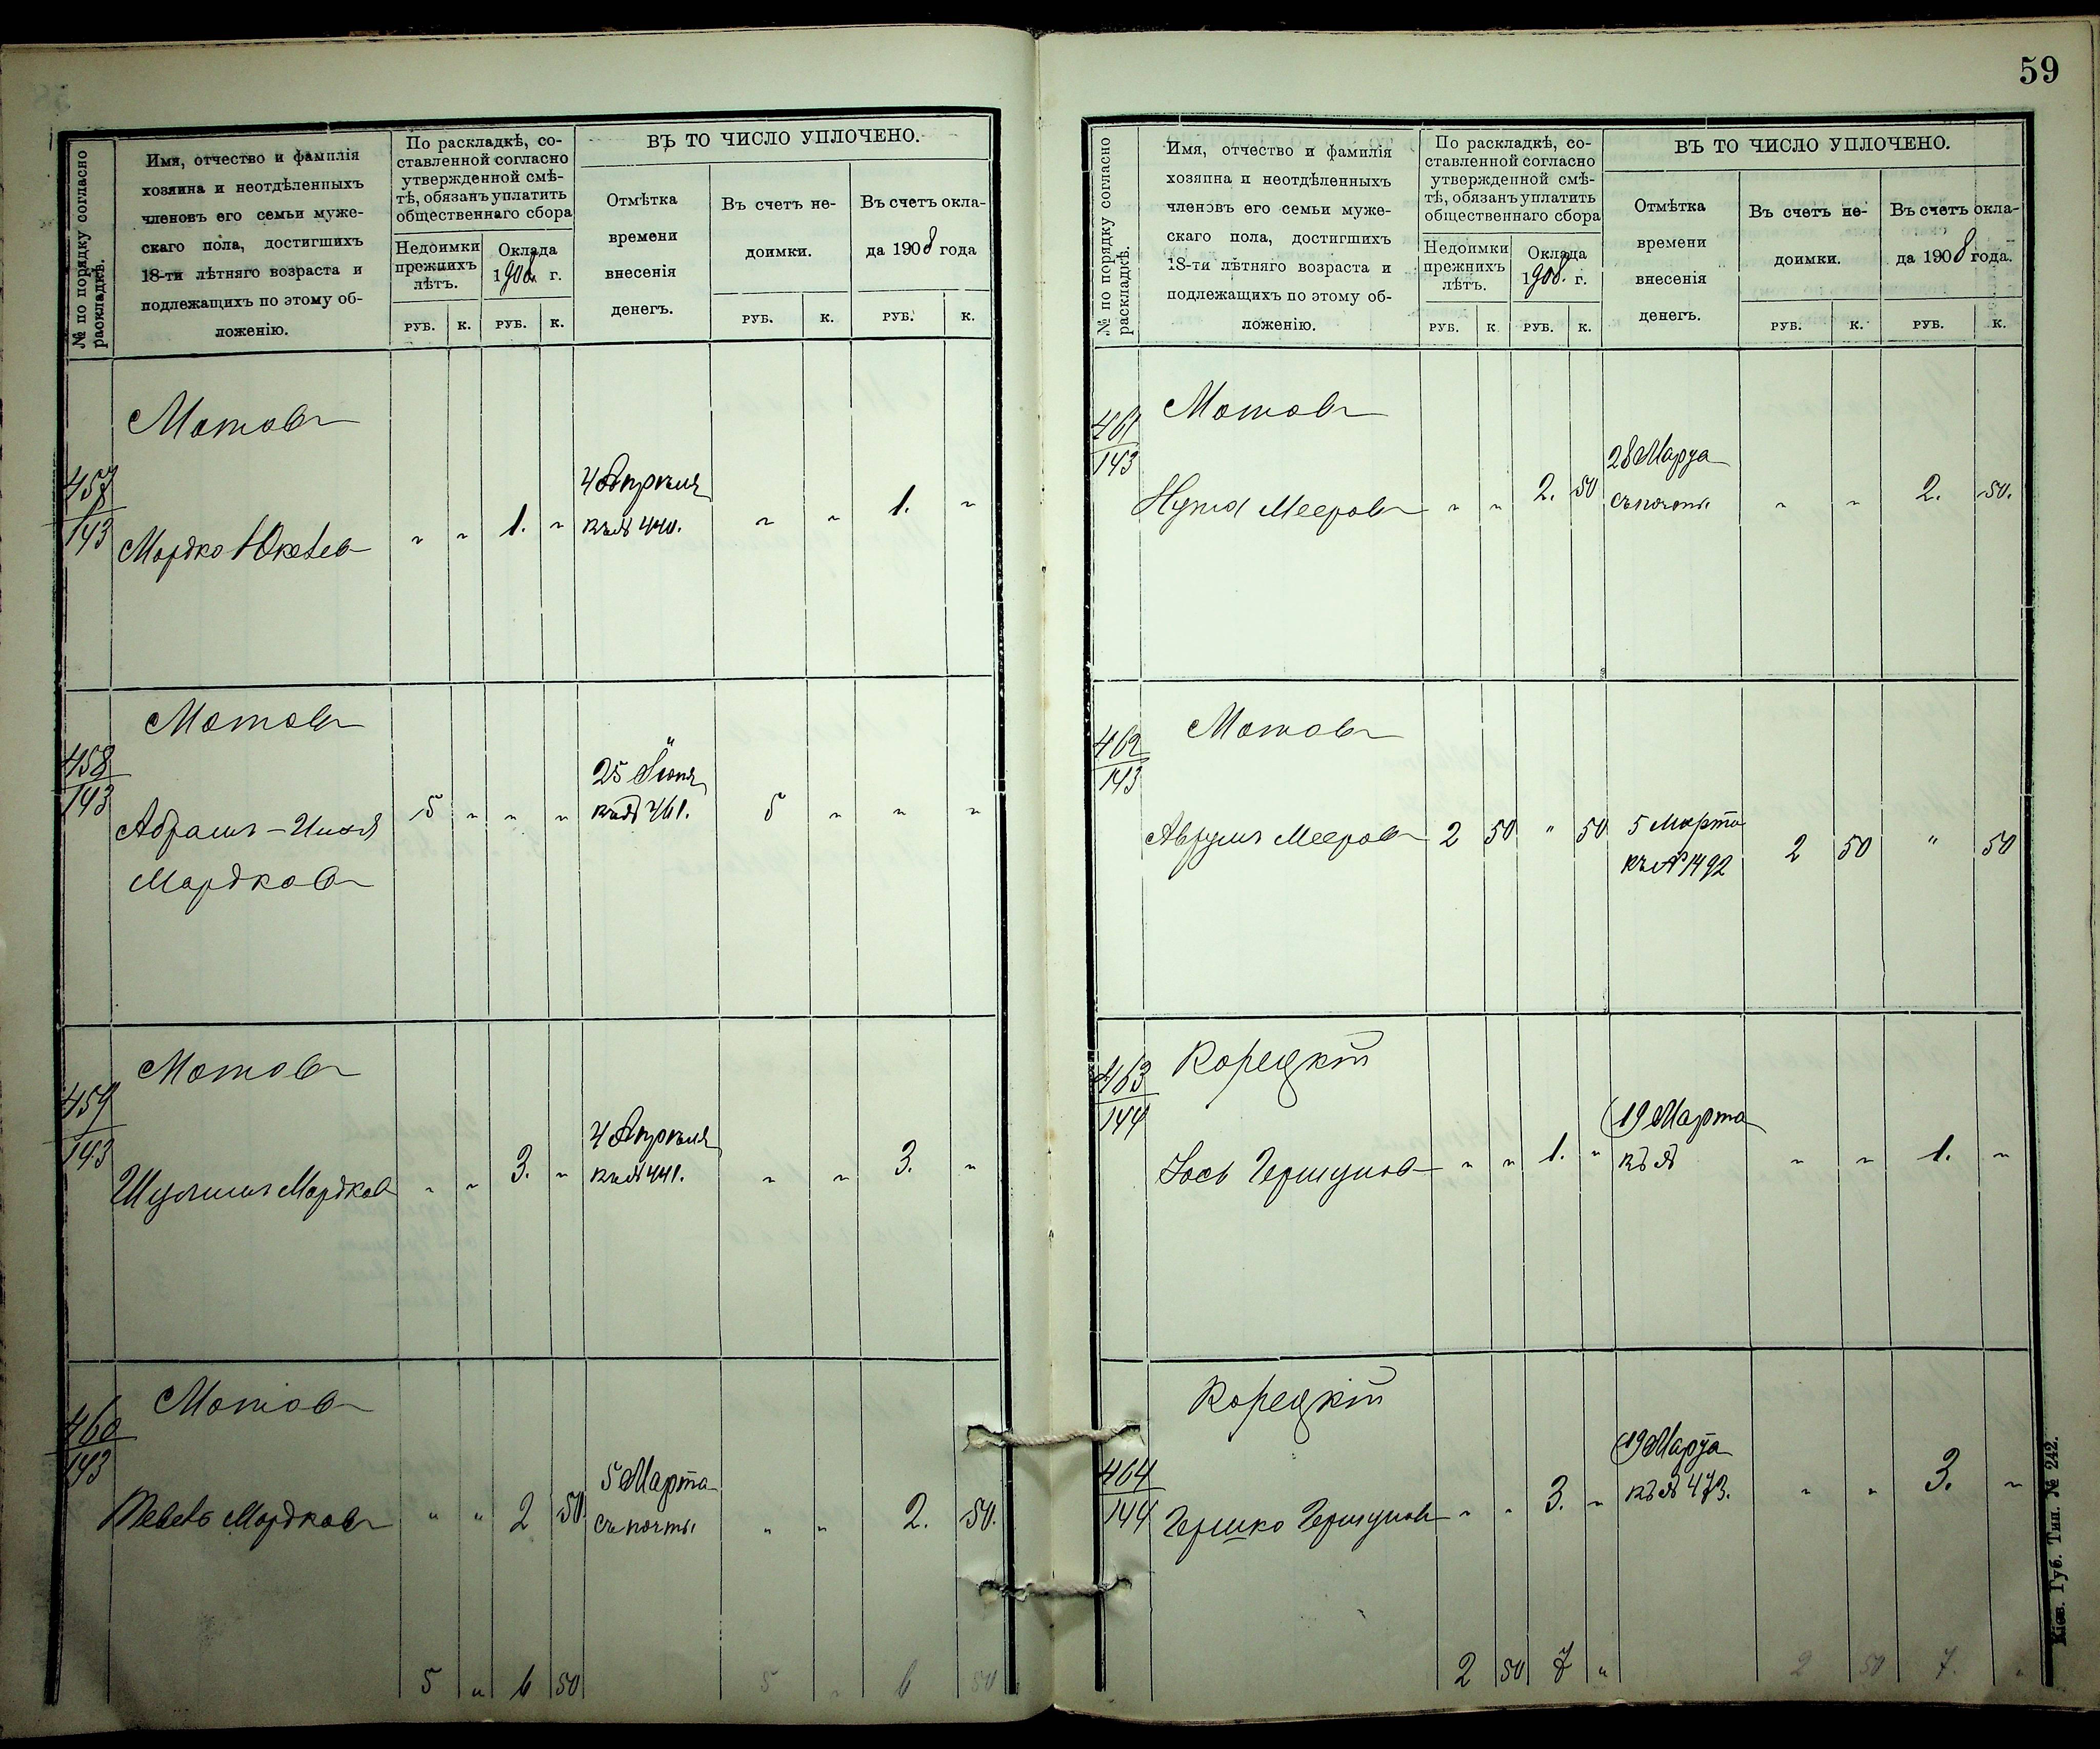 № по порядку согласно
раскладкѣ.
Имя, отчество и фамилія
хозяина и неотдѣленныхъ
членовъ его семьи муже-
скаго пола, достигшихъ
18-ти лѣтняго возраста и
подлежащихъ по этому об-
ложенію.
По раскладкѣ, со-
ставленной согласно
утвержденной смѣ-
тѣ, обязанъ уплатить
общественнаго сбора
Недоимки
прежнихъ
лѣтъ.
Оклада
1908 г.
РУБ. К. РУБ. К.
ВЪ ТО ЧИСЛО УПЛОЧЕНО.
Отмѣтка
времени
внесенія
денегъ.
Въ счетъ не-
доимки.
РУБ. К.
Въ счетъ окла-
да 1908 года
РУБ. К.
457
143
Мотовъ
Мордко
" " 1. "
4 Апрѣля
къ № 440.
" " 1. "
458
143
Мотовъ
Абрамъ-
Мордковъ
5 " " "
25 Іюня
къ № 461.
5 " " "
459
143
Мотовъ
Шулимъ Мордков
" " 3. "
4 Апрѣля
къ № 441.
" " 3. "
460
143
Мотовъ
Тевель Мордковъ
" " 2 50
5 Марта
съ почты
" " 2. 50.
5 " 6 50
5 " 6 50
59
№ по порядку согласно
раскладкѣ.
Имя, отчество и фамилія
хозяина и неотдѣленныхъ
членовъ его семьи муже-
скаго пола, достигшихъ
18-ти лѣтняго возраста и
подлежащихъ по этому об-
ложенію.
По раскладкѣ, со-
ставленной согласно
утвержденной смѣ-
тѣ, обязанъ уплатить
общественнаго сбора
Недоимки
прежнихъ
лѣтъ.
Оклада
1908. г.
РУБ. К РУБ. К.
ВЪ ТО ЧИСЛО УПЛОЧЕНО.
Отмѣтка
времени
внесенія
денегъ.
Въ счетъ не-
доимки.
РУБ. К.
Въ счетъ окла-
да 1908 года.
РУБ. К.
461
143
Мотовъ
Нута Мееровъ
" " 2. 50
28 Марта
съ почты
" " 2. 50.
462
143
Мотовъ
Аврумъ Мееровъ
2 50 " 50
5 Марта
къ № 1492
2 50 " 50
463
144
Корецкій
Іось Гершуновъ
" " 1. "
19 Марта
къ №
" " 1. "
464
144
Корецкій
Гершко Гершуновъ
" " 3. "
19 Марта
къ № 473.
" " 3. "
2 50 7 "
2 50 7. "
Кіев. Губ. Тип. № 242.